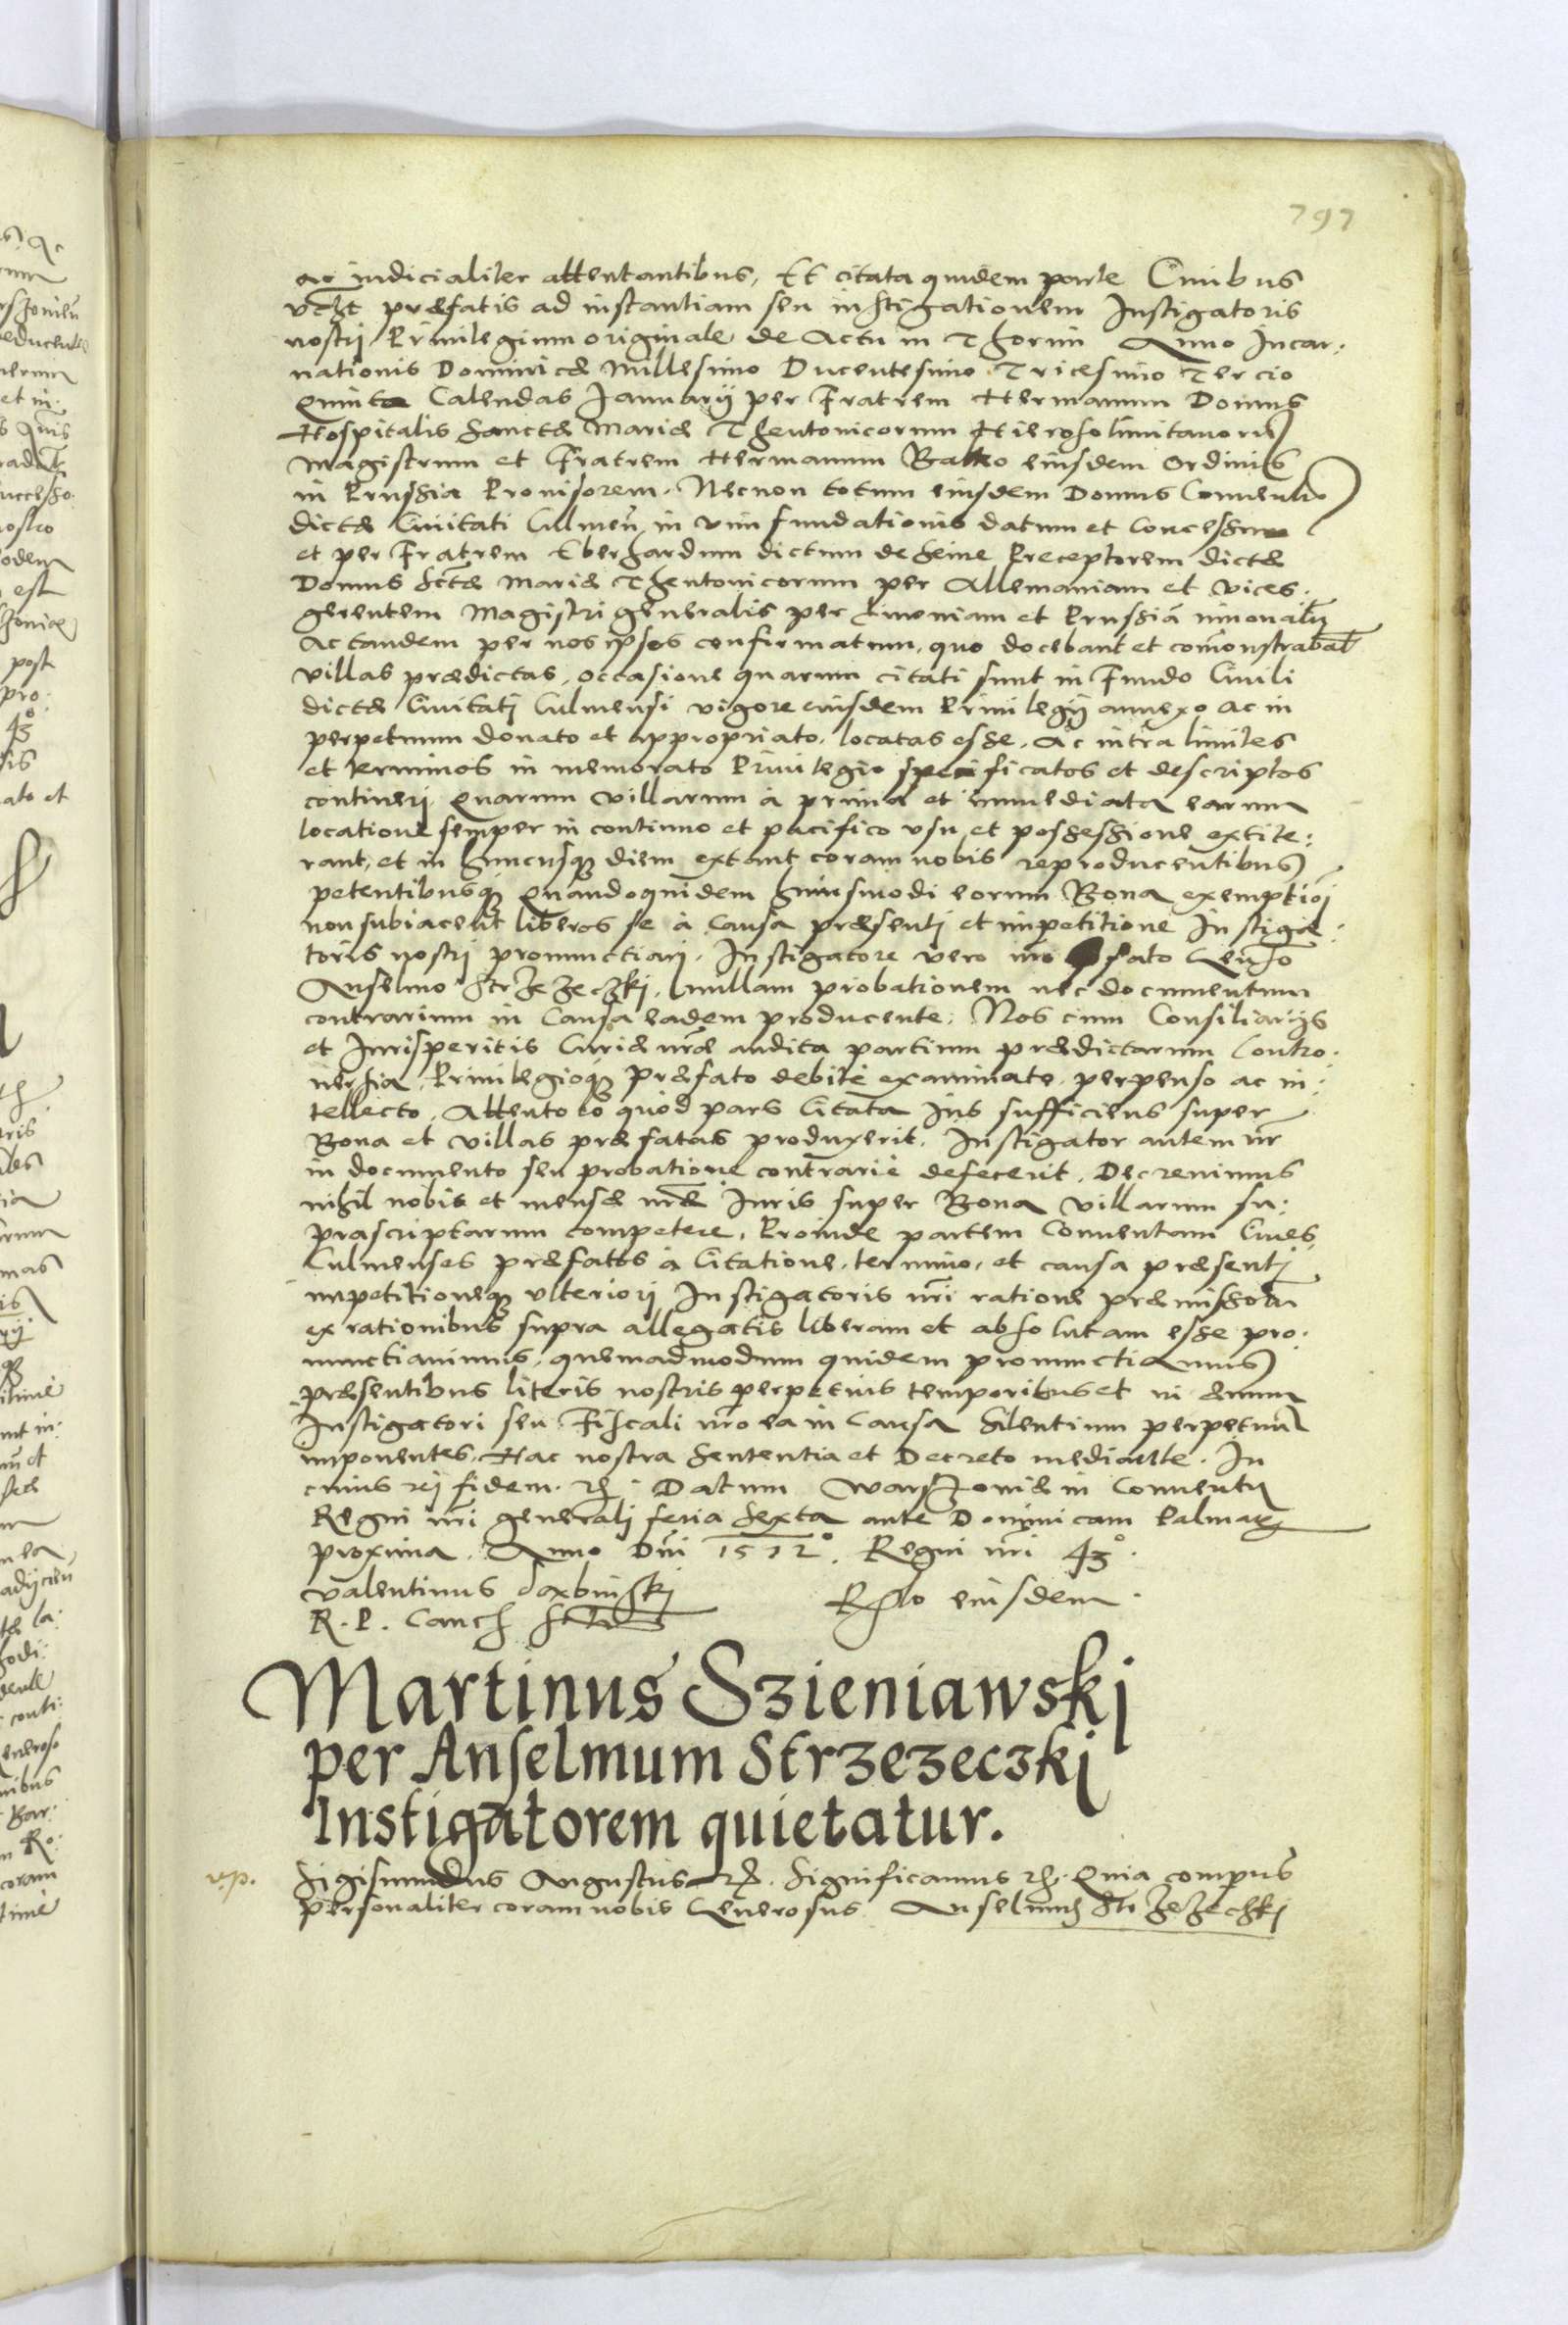 797
ac iudicialiter attentantibus, Et citata quidem parte Ciuibus
vtsr præfatis ad instantiam seu instigationem Instigatoris
nostri Priuilegium originale de Actu in Thorun Anno Incar:
nationis Dominicæ Millesimo Ducentesimo Tricesimo Tercio
Quinto Calendas Januarij per Fratrem Hermanum Domus
Hospitalis Sanctæ Mariæ Theutonicorum Hierosolimitanorū
Magistrum et Fratrem Hermanum Balko eiusdem Ordinis
in Prussia Prouisorem. Necnon totum eiusdem Domus Conuentū
dictæ Ciuitati Culmeñ in vim fundationis datum et Concessum
et per Fratrem Eberhardum dictum de Seine Preceptorem dictæ
Domus Sctæ Mariæ Theutonicorum per Allemaniam et vices.
gerentem Magistri generalis per Liuoniam et Prussiā innouatū
Ac tandem per nos ipsos confirmatum, quo docebant et com̄onstrabāt
villas prædictas, occasione quarum citati sunt in Fundo Ciuili
dictæ Ciuitati Culmensi vigore eiusdem Priuilegij annexo ac in
perpetuum donato et appropriato, locatas esse, Ac intra limites
et terminos in memorato Priuilegio specificatos et descriptos
contineri. Quarum villarum à prima et immediata earum
locatione semper in continuo et pacifico vsu et possessione extite:
rant, et in huncusq diem extant coram nobis reproducentibus
petentibusq quandoquidem huiusmodi eorum Bona exemptioi
non subiacent liberos se à Causa præsenti et impetitione Instiga:
toris nostri pronunctiari. Instigatore vero nr̄o fato Genso
Anselmo Strzezeczki, nullam probationem nec documentum
contrarium in Causa eadem producente. Nos cum Consiliarijs
et Jurisperitis Curiæ nræ audita partium prædictarum Contro.
uersia, Priuilegioq præfato debitè examinato, perpenso ac in:
tellecto. Attento eò quòd pars Citata Jus sufficiens super
Bona et villas præfatas produxerit. Instigator autem nr̄
in documento seu probatione contrarie defecerit. Decreuimus
nihil nobis et mensæ nræ Juris super Bona villarum su:
prascriptarum competere. Proinde partem Conuentam Ciues
Culmenses præfatos à Citatione, termino, et causa præsenti
impetitioneq vlteriori Instigatoris nr̄i ratione præmissorū
ex rationibus supra allegatis liberam et absolutam esse pro.
nunctiauimus, quemadmodum quidem pronunctiamus
præsentibus literis nostris perpetuis temporibus et in æuum
Instigatori seu Fiscali nr̄o ea in Causa Silentium perpetuū
imponentes. Hac nostra Sententia et Decreto mediante. In
cuius rei fidem. Datum Warszouiæ in Conuentu
Regni nr̄i generali feria Sexta ante Dominicam Palmarum
proxima. Anno Dnī 1572°. Regni nr̄i 43°.
Valentinus Daxbinski
Rlo eiusdem.
R. P. Canch
Martinus Szieniawski
per Anselmum Strzezeczki
Instigatorem quietatur.
v.p.
Sigismundus Augustus. Significamus. Quia comparēs
personaliter coram nobis Generosus Anselmus Strzezechki